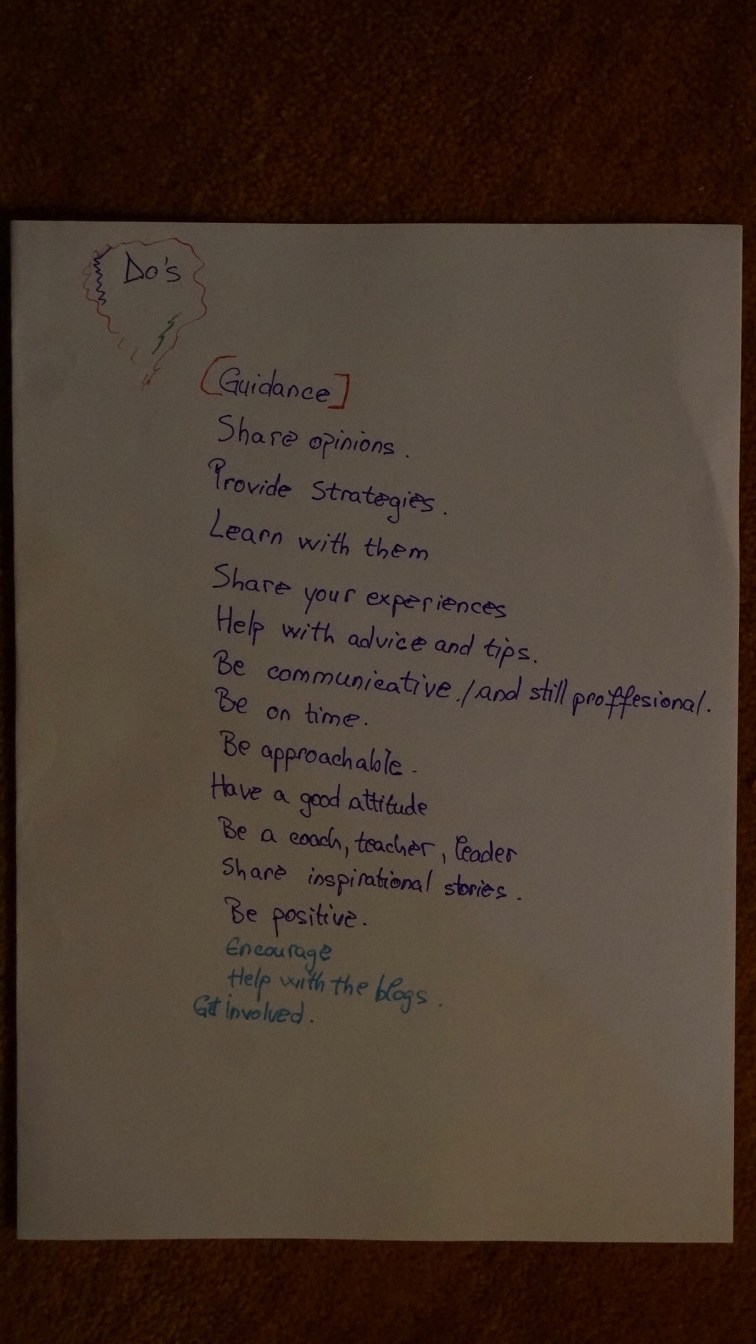 Do's
[Guidance]
Share opinions.
Provide Strategies.
Learn with them
Share your experiences
Help with advice and tips.
Be communicative./and still proffesional.
Be on time.
Be approachable.
Have a good attitude
Be a coach, teacher, leader
Share inspirational stories.
Be positive.
Encourage
Help with the blogs.
Get involved.